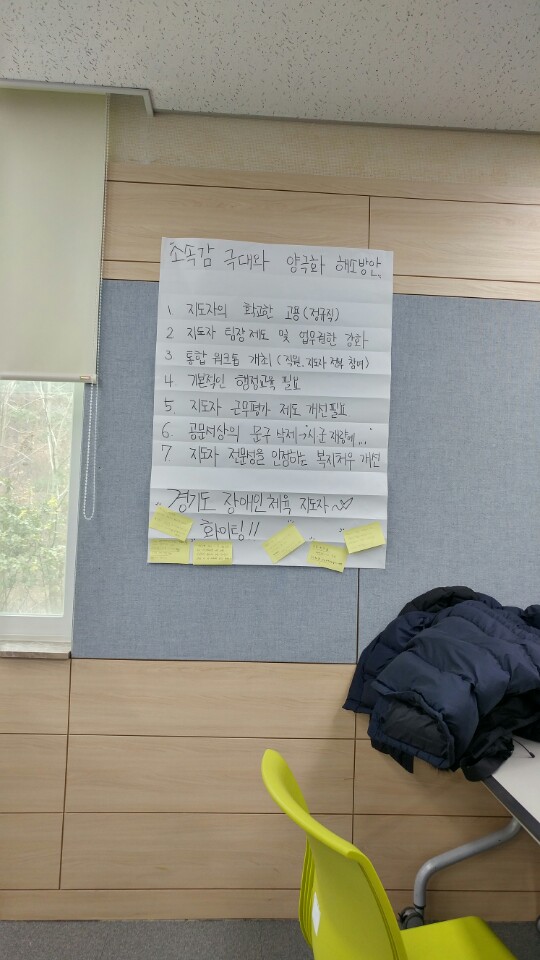 소속감 극대화 양극화 해소방안
1 지도자의 확고한 고용(정규직)
2 지도자 팀장제도 및 업무권한 강화
3 통합 워크톱 개최 (직원.지도자 전부 참여)
4. 기본적인 행정교육 필요
5. 지도자 근무평가 제도 개선필요
6. 공문서상의 문구 삭제→"시군 재량에..."
7 지도자 전문성을 인정하는 복지처우 개선
경기도 장애인체육 지도자~
화이팅!!